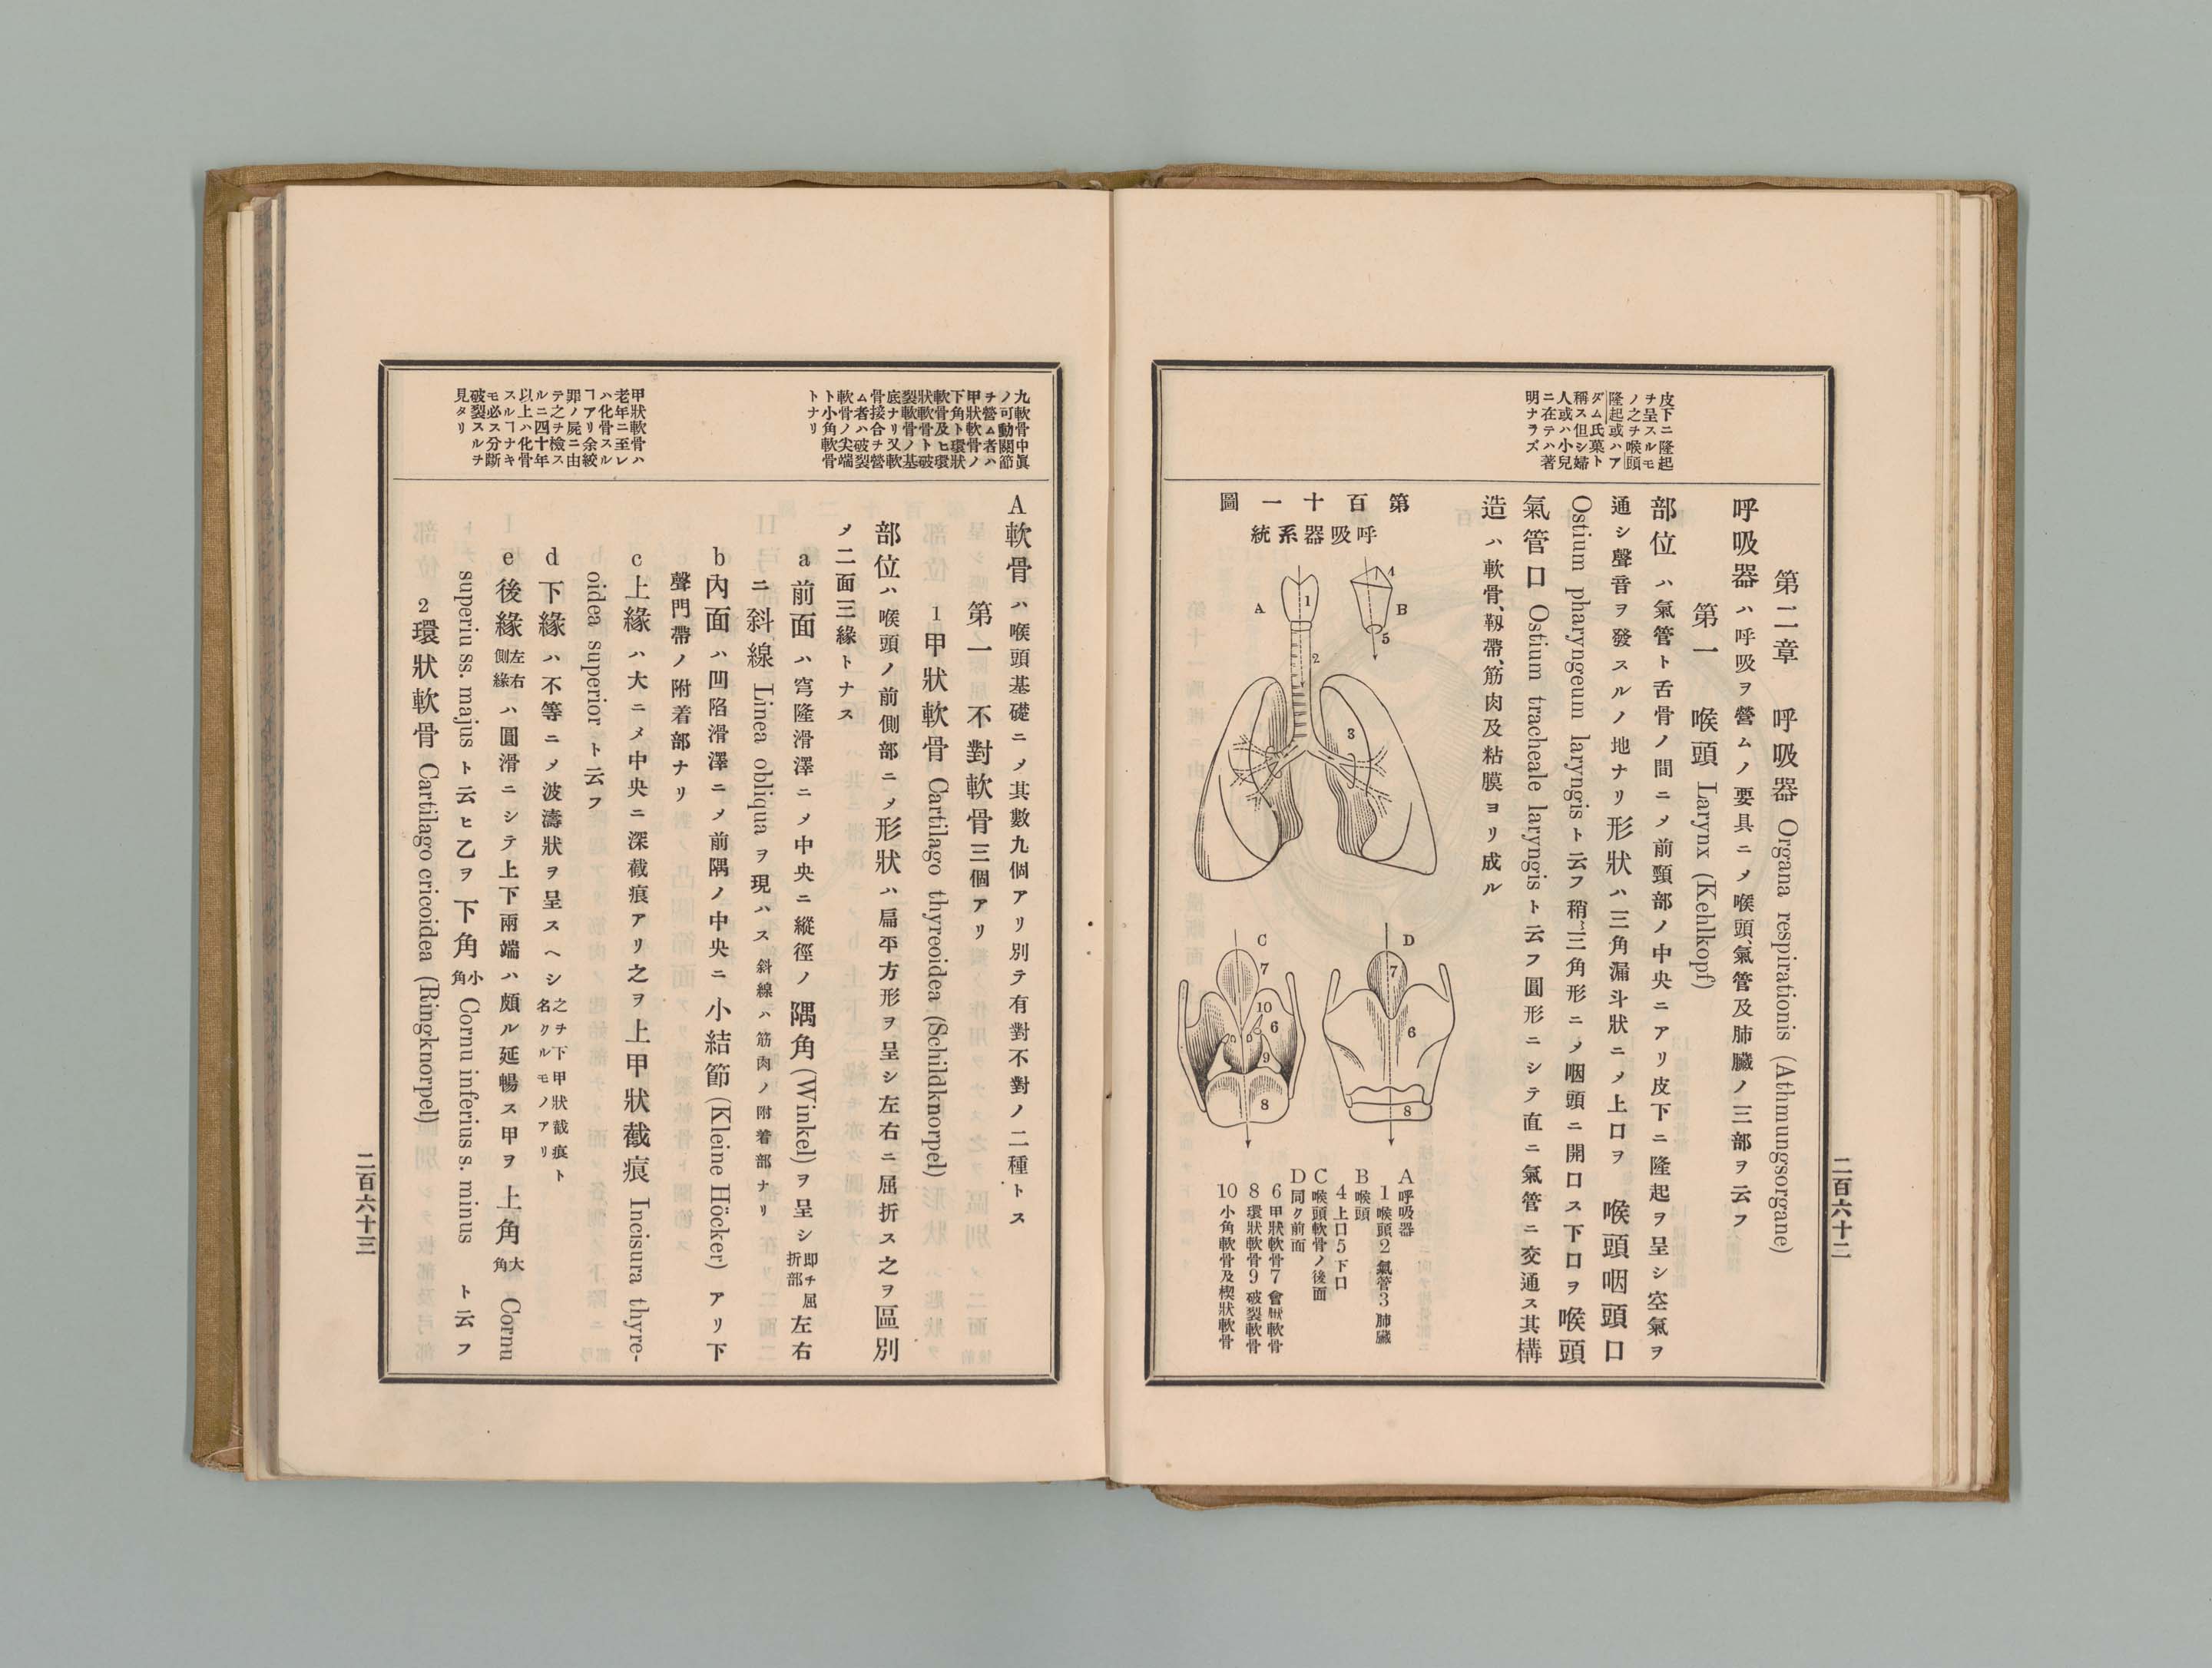 皮下ニ隆起
ヲ呈スルモ
ノ之ヲ喉頭
隆起或ハア
ダム氏菓ト
稱ス但シ婦
人或ハ小兒
ニ在テハ著
明ナラズ
第二章　呼吸器 Organa respirationis (Athmungsorgane)
呼吸器ハ呼吸ヲ營ムノ要具ニ〆喉頭、氣管及肺臟ノ三部ヲ云フ
第一　喉頭 Larynx (Kehlkopf)
部位ハ氣管ト舌骨ノ間ニ〆前頸部ノ中央ニアリ皮下ニ隆起ヲ呈シ空氣ヲ
通シ聲音ヲ發スルノ地ナリ形狀ハ三角漏斗狀ニ〆上口ヲ　喉頭咽頭口
Ostium pharyngeum laryngis ト云フ稍三角形ニ〆咽頭ニ開口ス下口ヲ喉頭
氣管口 Ostium tracheale laryngis ト云フ圓形ニシテ直ニ氣管ニ交通ス其構
造ハ軟骨、靱帶、筋肉及粘膜ヨリ成ル
第百十一圖
呼吸器系統
A
1
2
3
B
4
5
C
7
10
6
9
8
D
7
6
8
A 呼吸器
1 喉頭 2 氣管 3 肺臟
B 喉頭
4 上口 5 下口
C 喉頭軟骨ノ後面
D 同ク前面
6 甲狀軟骨 7 會厭軟骨
8 環狀軟骨 9 破裂軟骨
10 小角軟骨及楔狀軟骨
二百六十二
九軟骨中眞
ノ可動關節
ヲ營ム者ハ
甲狀軟骨ノ
下角ト環狀
軟骨及ヒ環
狀軟骨ト破
裂軟骨ノ基
底ナリ又軟
骨接合ヲ營
ム者ハ破裂
軟骨ノ尖端
ト小角軟骨
トナリ
甲狀軟骨ハ
老年ニ至レ
ハ化骨スル
ヿアリ余絞
罪ノ屍ニ由
テ之ヲ檢ス
ルニ四十年
以上ハ化骨
スルヿナキ
モ必ス分斷
破裂スルヲ
見タリ
A 軟骨ハ喉頭基礎ニ〆其數九個アリ別テ有對不對ノ二種トス
第一　不對軟骨三個アリ
1 甲狀軟骨 Cartilago thyreoidea (Schildknorpel)
部位ハ喉頭ノ前側部ニ〆形狀ハ扁平方形ヲ呈シ左右ニ屈折ス之ヲ區別
ノ二面三緣トナス
a 前面ハ穹隆滑澤ニ〆中央ニ縱徑ノ　隅角 (Winkel) ヲ呈シ 即チ屈折部 左右
ニ斜線 Linea obliqua ヲ現ハス 斜線ハ筋肉ノ附着部ナリ
b 內面ハ凹陷滑澤ニ〆前隅ノ中央ニ　小結節 (Kleine Höcker) アリ下
聲門帶ノ附着部ナリ
c 上緣ハ大ニ〆中央ニ深截痕アリ之ヲ上甲狀截痕 Incisura thyre-
oidea superior ト云フ
d 下緣ハ不等ニ〆波濤狀ヲ呈スヘシ 之ヲ下甲狀截痕ト名クルモノアリ
e 後緣 左右側緣 ハ圓滑ニシテ上下兩端ハ頗ル延暢ス甲ヲ　上角 大角 Cornu
superiu ss. majus ト云ヒ乙ヲ下角 小角 Cornu inferius s. minus　ト云フ
2 環狀軟骨 Cartilago cricoidea (Ringknorpel)
二百六十三